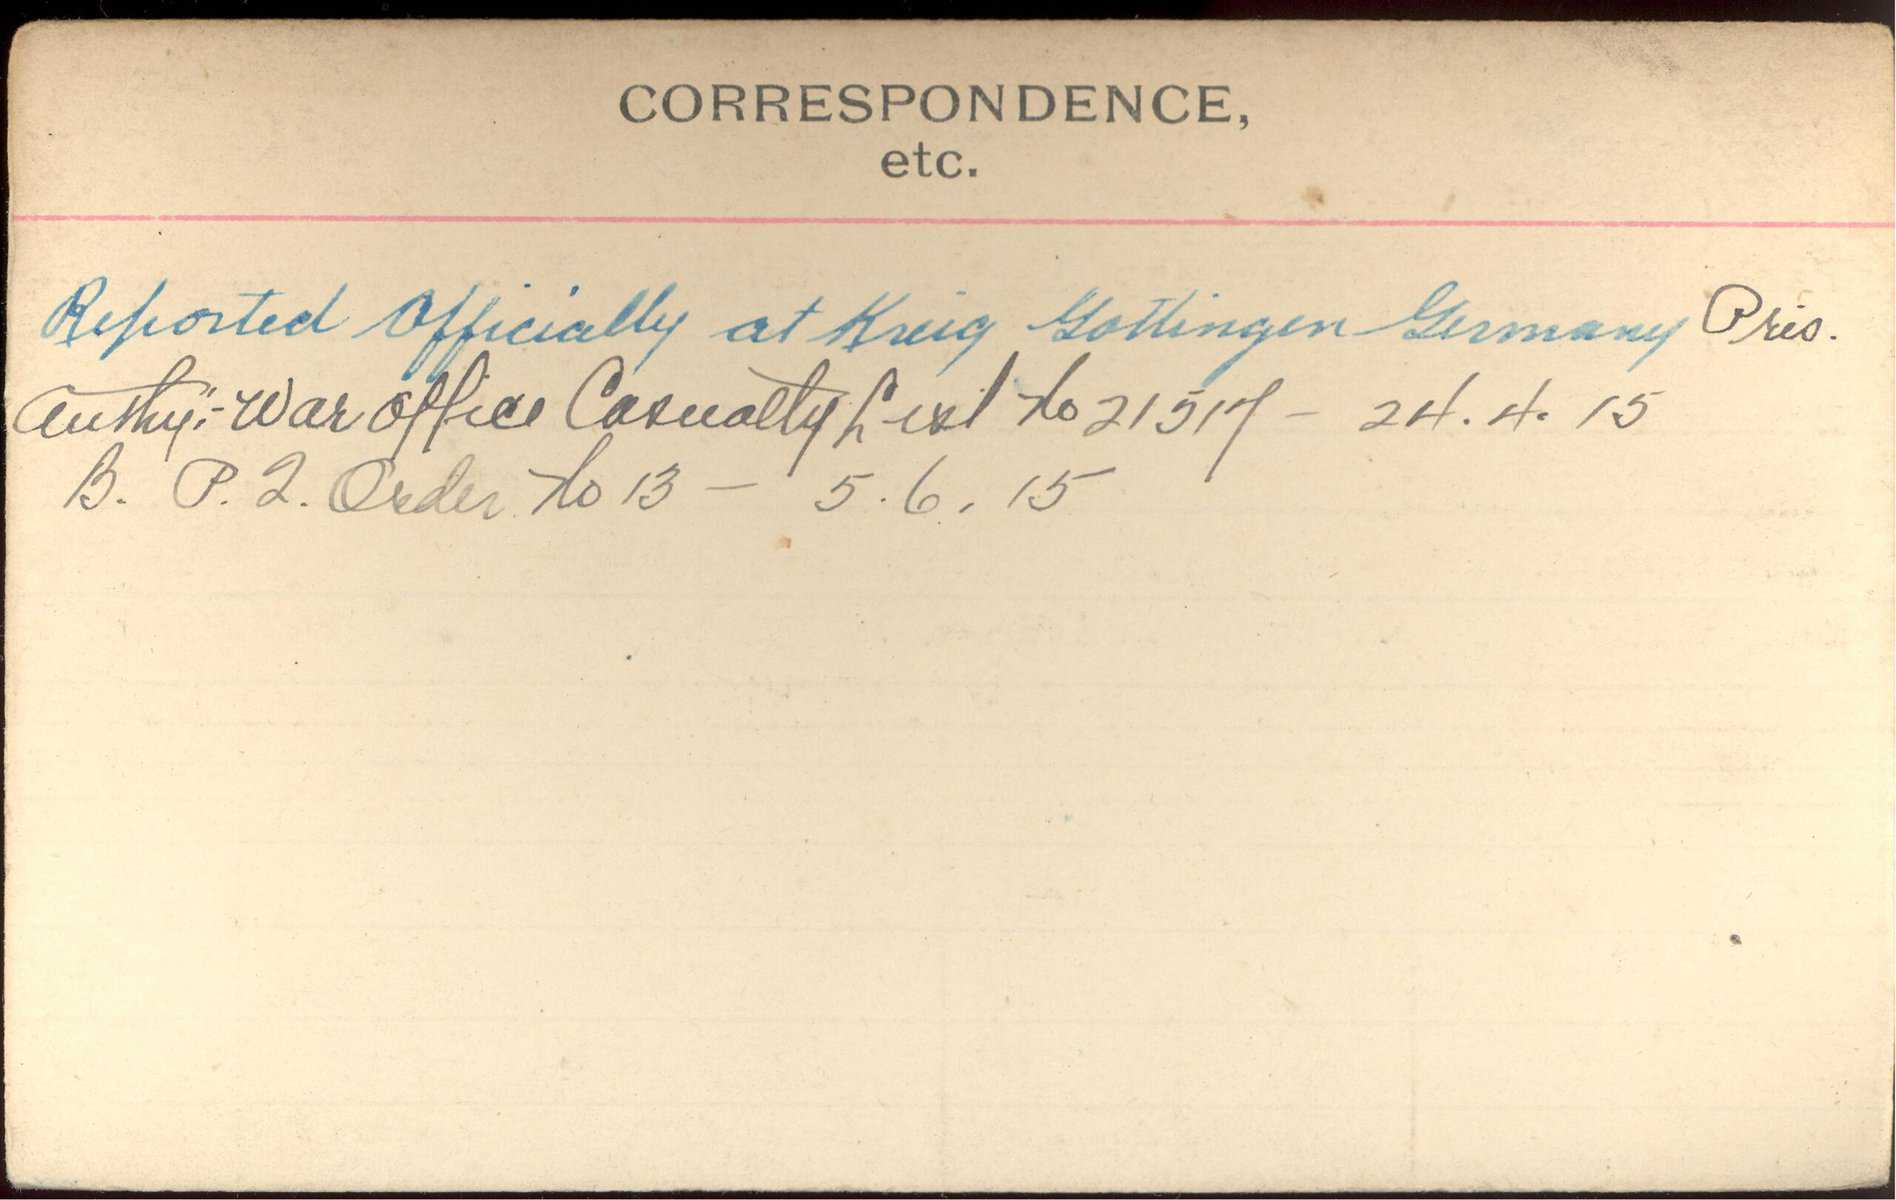 CORRESPONDENCE,
etc.
Reported Officially at Kreig Gottingen Germany Pris.
Authy:- War Office Casualty List No 21517 - 24.4.15
B. P. 2. Order No 13 - 5.6.15